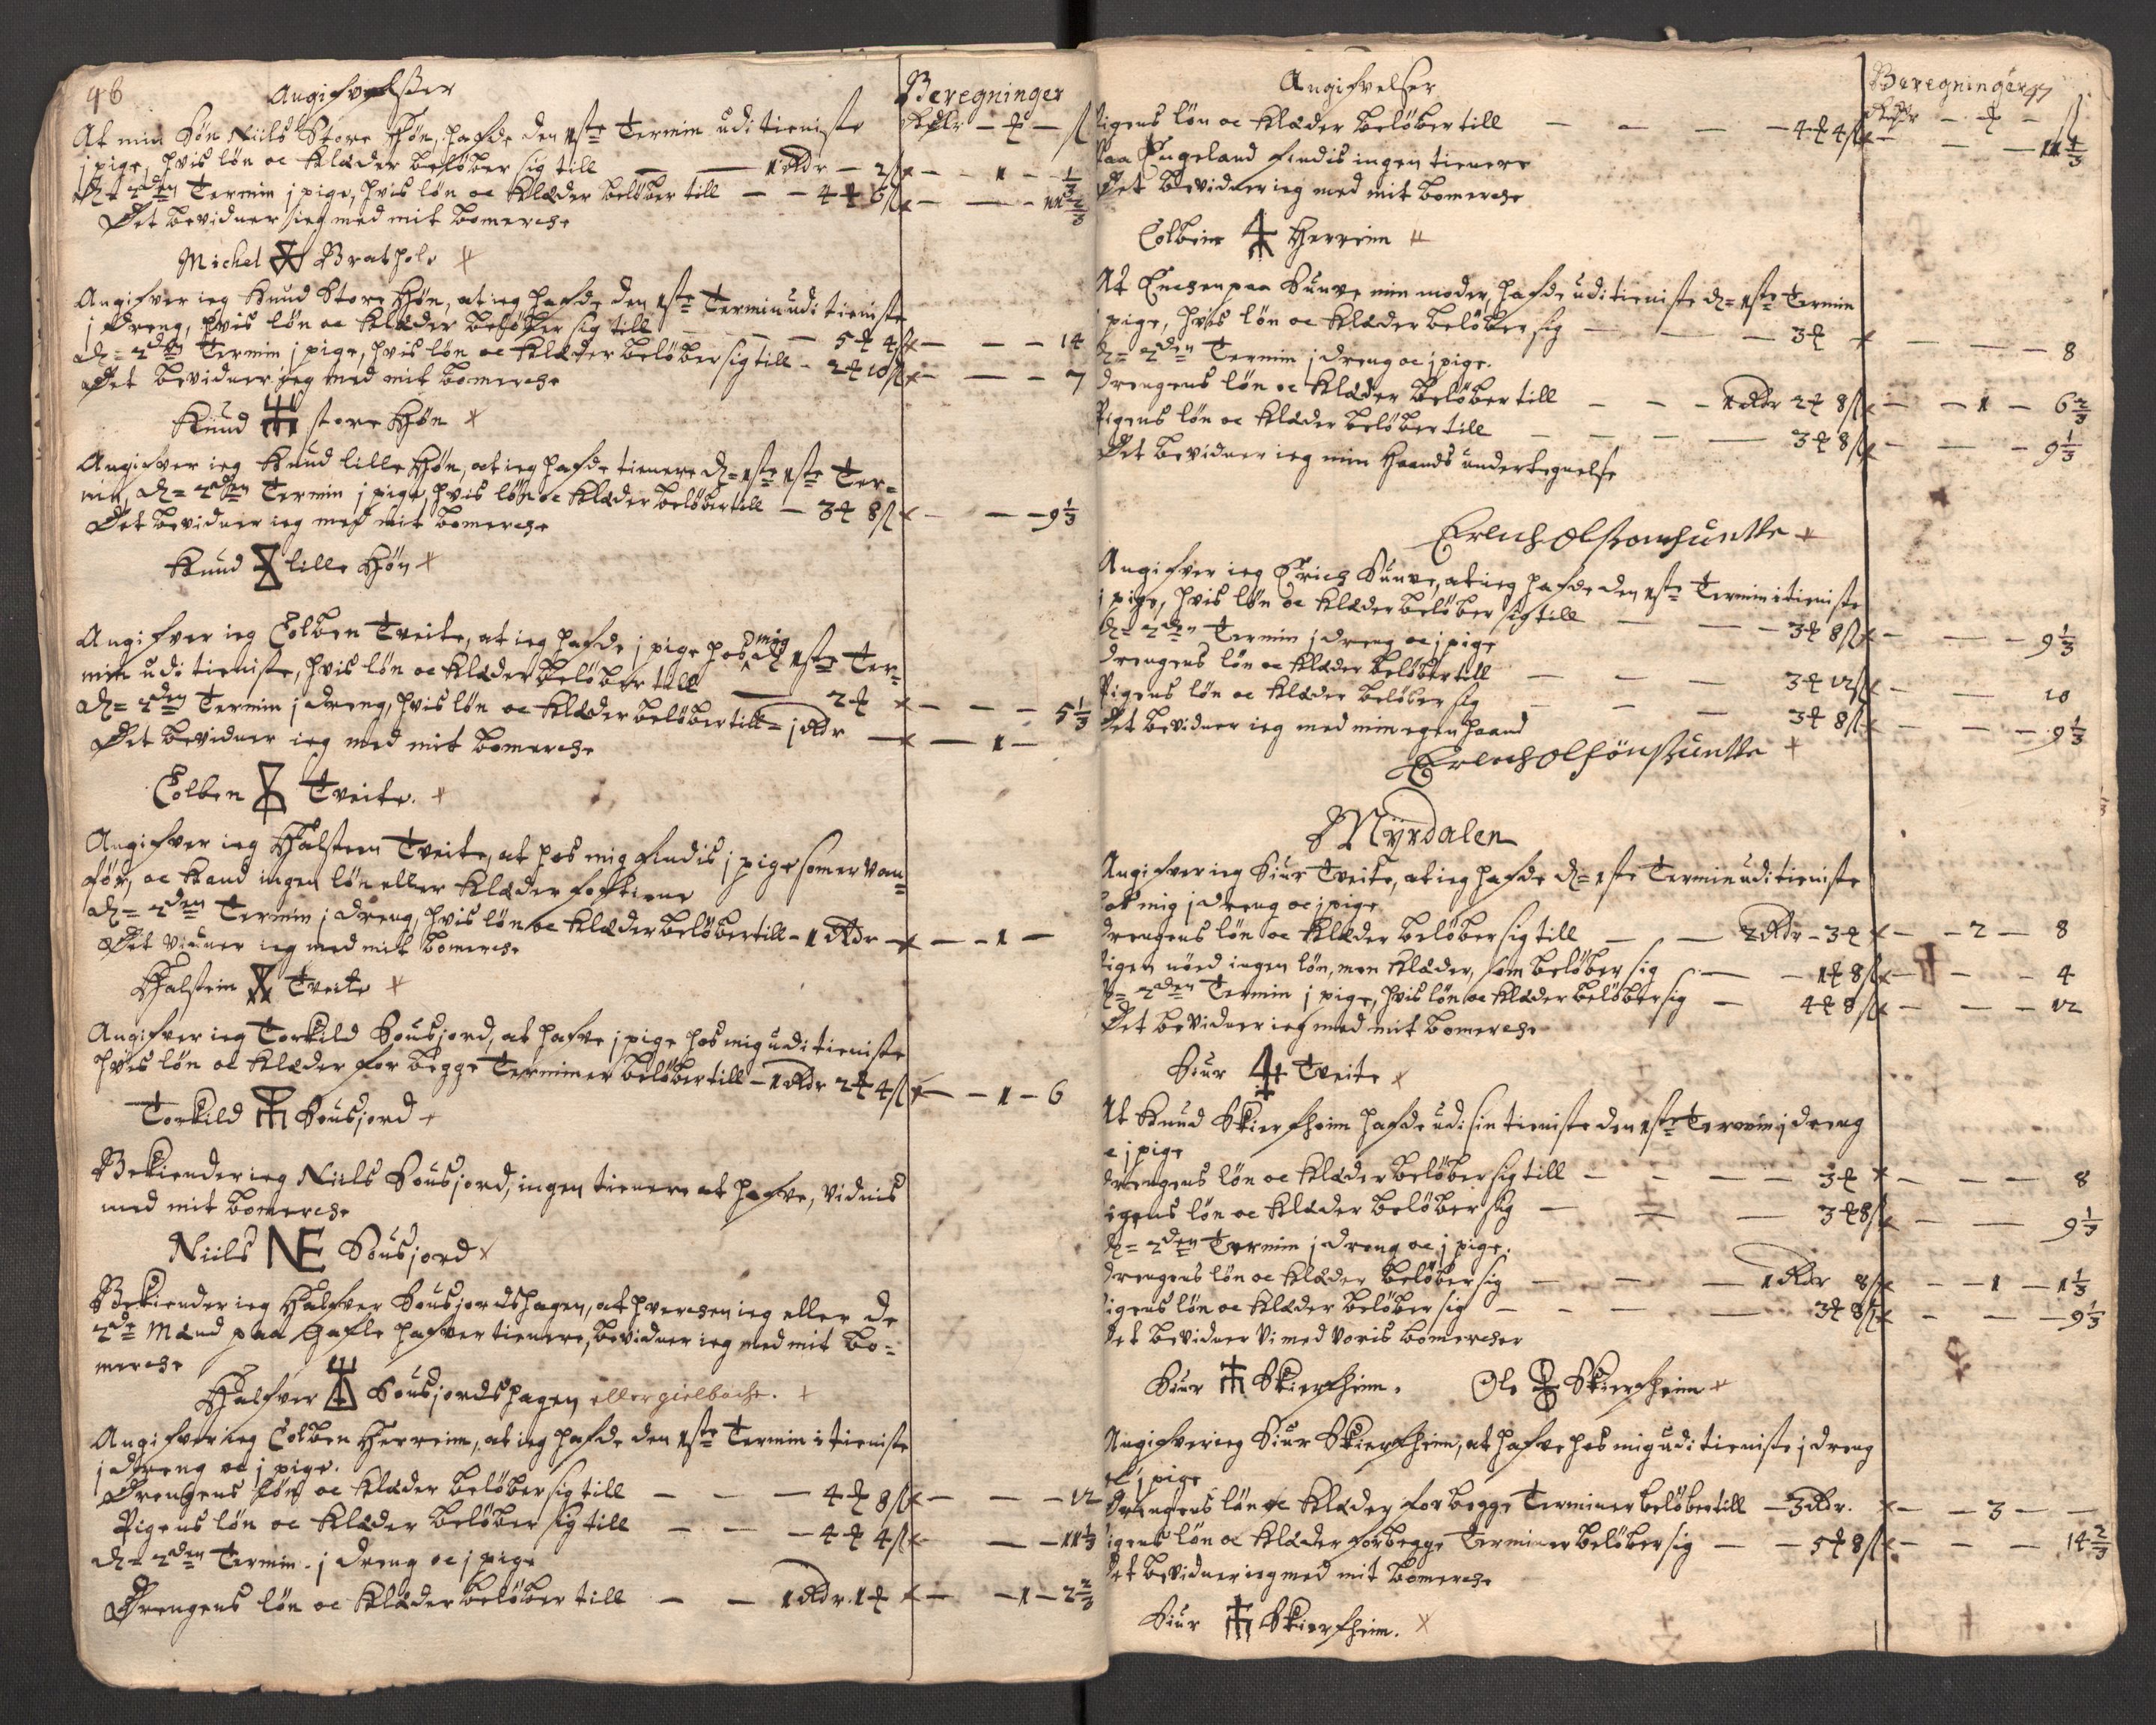 46
Angifvelsser
Beregninger
At min Søn Niils Store Høn, hafde den 1ste Termin udi tieniste
Rdlr — ₰ — ß
j pige, hvis løn oc Klæder beløber sig till — — 1 Rdr — 2 ß — — 1 — 1/3
d= 2den Termin j pige, hvis løn oc Klæder beløber till — — 4 ₰ 6 ß — — — 11 2/3
Det bevidner ieg med mit bomerche
Michel Brathole
Angifver ieg Knud Store Høn, at ieg hafde den 1ste Termin udi tieniste
j dreng, hvis løn oc Klæder beløber sig till — — 5 ₰ 4 ß — — — 14
d= 2den Termin j pige, hvis løn oc Klæder beløber sig till - 2 ₰ 10 ß — — — 7
Det bevidner ieg med mit bomerche
Knud store Høn
Angifver ieg Knud lille Høn, at ieg hafde tienere d= 1ste 1ste Ter=
min, d= 2den Termin j pige, hvis løn oc Klæder beløber till — 3 ₰ 8 ß — — — 9 1/3
Det bevidner ieg med mit bomerche
Knud lille Høn
Angifver ieg Colben Tveite, at ieg hafde j pige hos mig d= 1ste Ter=
min udi tieniste, hvis løn oc Klæder beløber till — 2 ₰ — — — 5 1/3
d= 2den Termin j dreng, hvis løn oc Klæder beløber till = j Rdr — — 1 —
Det bevidner ieg med mit bomerche
Colben Tveite.
Angifver ieg Halsteen Tveite, at hos mig findis j pige som er van=
før, oc Kand ingen løn eller Klæder fortiene
d= 2den Termin j dreng, hvis løn oc Klæder beløber till - 1 Rdr — — 1 —
Det vidner ieg med mit bomerche
Halstein Tveite
Angifver ieg Torkild Sousjord, at hafve j pige hos mig udi tieniste
hvis løn oc Klæder for begge Terminer beløber till — 1 Rdr 2 ₰ 4 ß — — 1 — 6
Torkild Sousjord
Bekiender ieg Niils Sousjord, ingen tienere at hafve, vidnis
med mit bomerche
Niils NE Sousjord
Bekiender ieg Halfver Sousjordshagen, at hverchen ieg eller de
2de Mænd paa Gafle hafver tienere, bevidner ieg med mit bo=
merche
Halfver Sousjordshagen eller gielbache.
Angifver ieg Colben Herreim, at ieg hafde den 1ste Termin i tieniste
j dreng oc j pige.
Drengens løn oc Klæder beløber sig till — — — 4 ₰ 8 ß — — — 12
Pigens løn oc Klæder beløber sig till — — — 4 ₰ 4 ß — — — 11 1/3
d= 2den Termin. j dreng oc j pige
Drengens løn oc Klæder beløber till — — 1 Rdr. 1 ₰ — — 1 — 2 2/3
Angifvelser
Beregninger 47
Pigens løn oc Klæder beløber till — — — — 4 ₰ 4 ß — — — 11 1/3
Paa Engeland findis ingen tienere
Det bevidner ieg med mit bomerche
Colben Herreim
At Enchen paa Sunve min moder, hafde udi tieniste d= 1ste Termin
pige, hvis løn oc Klæder beløber sig — — — 3 ₰ — — — 8
d= 2den Termin j dreng oc j pige.
drengens løn oc Klæder beløber till — — — 1 Rdr 2 ₰ 8 ß — — 1 — 6 2/3
Pigens løn oc Klæder beløber till — — — — 3 ₰ 8 ß — — — 9 1/3
Det bevidner ieg min Haands undertegnelse
Angifver ieg Erich Sunve, at ieg hafde den 1ste Termin i tieniste
j pige, hvis løn oc Klæder beløber sig till — — — 3 ₰ 8 ß — — — 9 1/3
d= 2den Termin j dreng oc j pige
drengens løn oc Klæder beløber till — — — 3 ₰ 12 ß — — 10
Pigens løn oc Klæder beløber sig — — — 3 ₰ 8 ß — — — 9 1/3
Det bevidner ieg med min egen haand
Myrdalen
Angifver ieg Siur Tveite, at ieg hafde d= 1ste Termin udi tieniste
hos mig j dreng oc j pige
drengens løn oc Klæder beløber sig till — — 2 Rdr - 3 ₰ — — 2 — 8
Pigen nöed ingen løn, men Klæder, som beløber sig — — 1 ₰ 8 ß — — — 4
d= 2den Termin j pige, hvis løn oc Klæder beløber sig — 4 ₰ 8 ß — — — 12
Det bevidner ieg med mit bomerche
Siur Tveite
At Knud Skierfheim hafde udi sin tieniste den 1ste Termin j dreng
oc j pige
drengens løn oc Klæder beløber sig till — — — 3 ₰ — — — 8
Pigens løn oc Klæder beløber sig — — — 3 ₰ 8 ß — — 9 1/3
d= 2den Termin j dreng oc j pige.
drengens løn oc Klæder beløber sig — — — 1 Rdr 8 ß — — 1 — 1 1/3
Pigens løn oc Klæder beløber sig — — — 3 ₰ 8 ß — — — 9 1/3
Det bevidner vi med voris bomercher
Siur Skierfheim. Ole Skierfheim
Angifver ieg Siur Skierfheim, at hafve hos mig udi tieniste j dreng
oc j pige
Drengens løn oc Klæder for begge Terminer beløber till — 3 Rdr. — — 3 — —
Pigens løn oc Klæder for begge Terminer beløber sig — — 5 ₰ 8 ß — — — 14 2/3
Det bevidner ieg med mit bomerche
Siur Skierfheim.